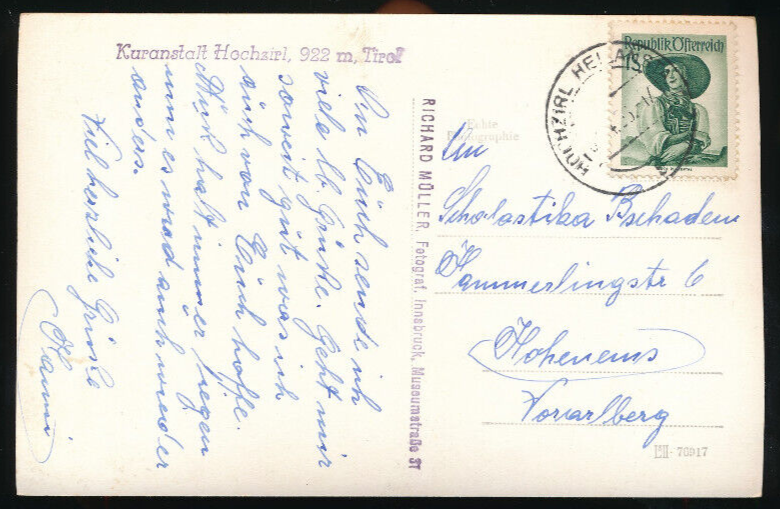 Kuranstalt Hochzirl, 922 m, Tirol
An Euch sende ich
viele lb. Grüße. Geht mir
soweit gut was ich
auch von Euch hoffe.
Muß halt immer liegen
nun es wird auch wieder
anders.
Viel herzliche Grüße
Hanni
RICHARD MÜLLER, Fotograf, Innsbruck, Museumstraße 37
Echte
Photographie
Republik Österreich
HOCHZIRL HEILANST
An
Scholastika Bschadem
Hämmerlingstr 6
Hohenems
Vorarlberg
76917